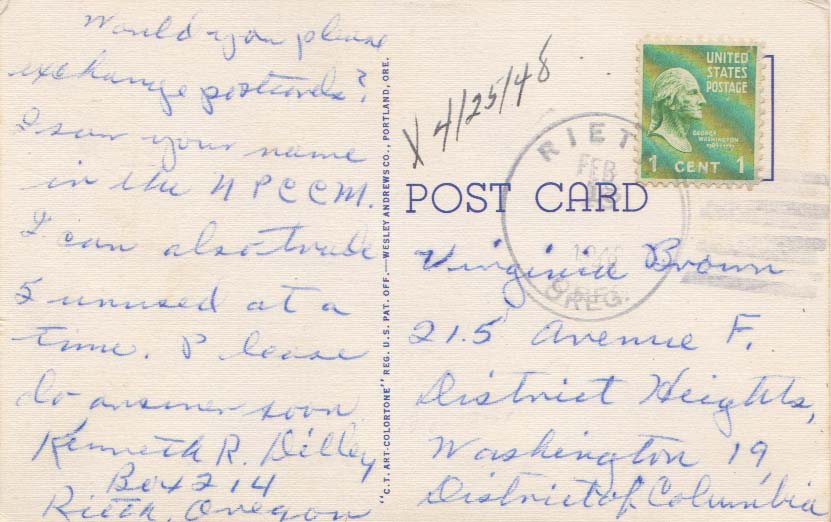 Would you please
exchange postcards?
I saw your name
in the NPCCM.
I can also trade
5 unused at a
time. Please
do answer soon
Kenneth R. Dilley
Box 214
Rieth, Oregon
"C.T. ART-COLORTONE" REG. U.S. PAT. OFF.—WESLEY ANDREWS CO., PORTLAND, ORE.
X 4/25/48
RIET
FEB
OREG.
UNITED
STATES
POSTAGE
GEORGE
WASHINGTON
1 CENT 1
POST CARD
Virginia Brown
215 Avenue F.
District Heights,
Washington 19,
District of Columbia